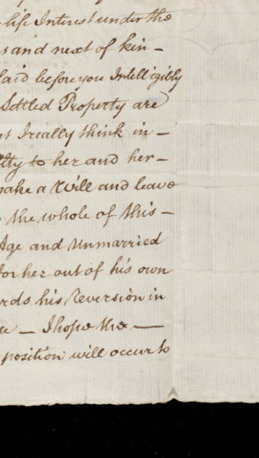 life Interest under the
s and next of kin –
laid before you Intelligibly
Settled Property are
st I really think in –
lty to her and her –
make a Will and leave
the whole of this –
Age and unmarried
for her out of his own
rds his Reversion in
– I hope the –
position will occur to